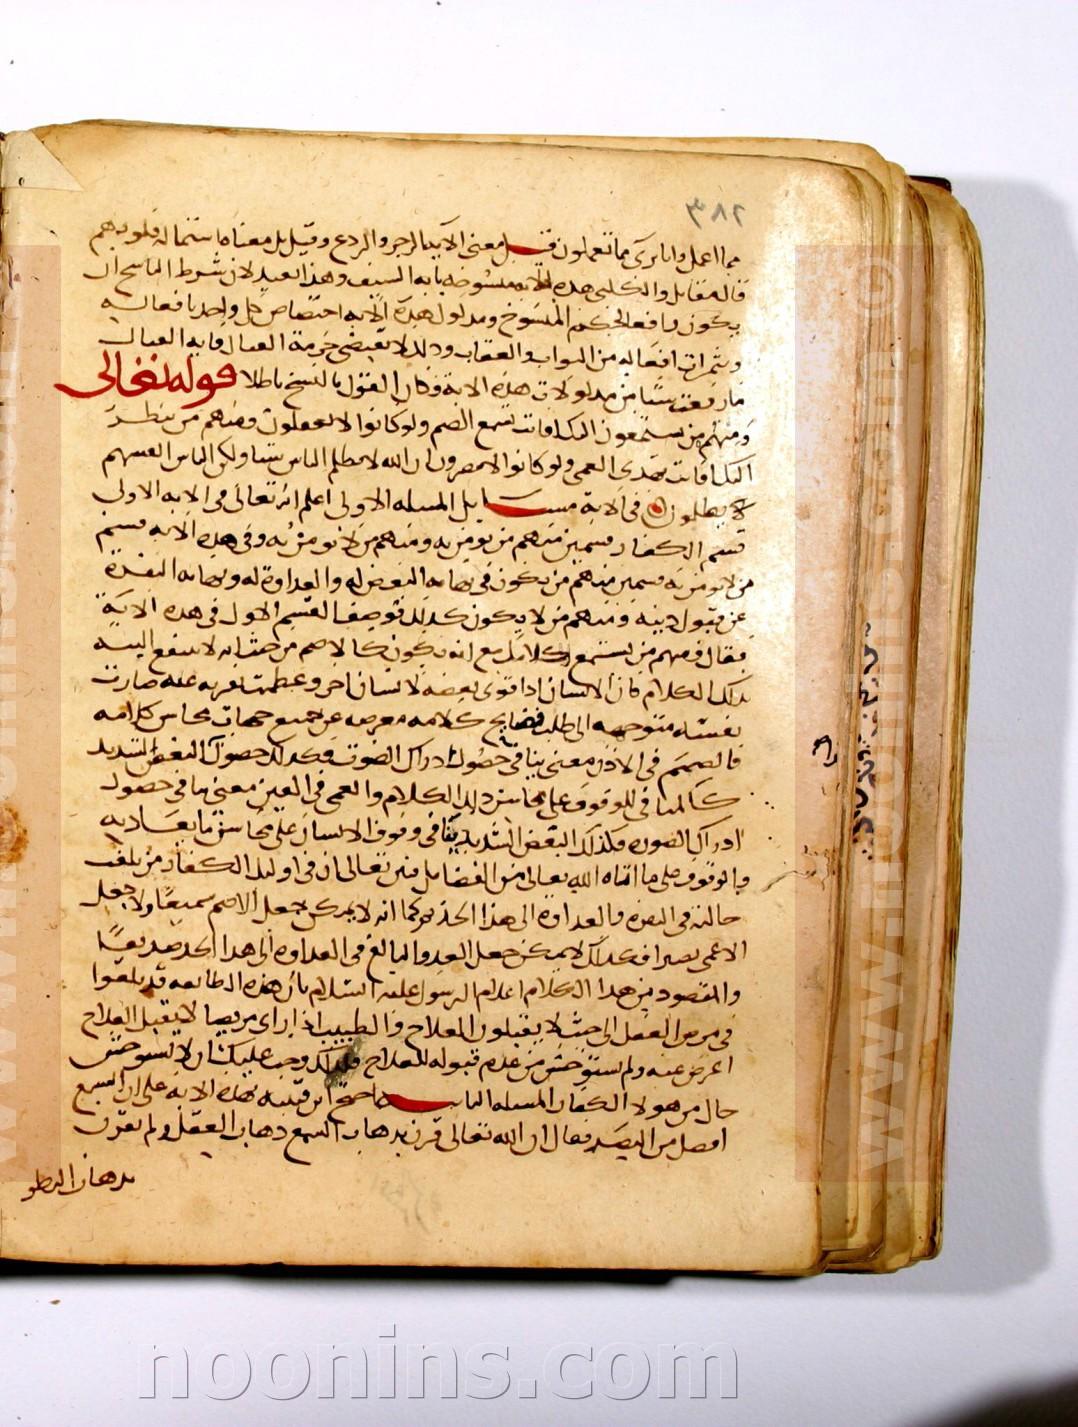 ٢٨٣
مما اعمل وانا بري مما تعملون قيل معنى الآية الزجر والردع وقيل بل معناه استمالة قلوبهم
قال مقاتل والكلبي هذه الآية منسوخة باية السيف وهذا بعيد لان شرط الناسخ ان
يكون رافعا لحكم المنسوخ ومدلول هذه الآية اختصاص كل واحد بافعاله
وبثمرات افعاله من الثواب والعقاب وذلك لا يقتضي حرمة القتال فاية القتال
ما رفعت شيا من مدلولات هذه الاية فكان القول بالنسخ باطلا قوله تعالى
ومنهم من يستمعون اليك افانت تسمع الصم ولو كانوا لا يعقلون ومنهم من ينظر
اليك افانت تهدي العمي ولو كانوا لا يبصرون ان الله لا يظلم الناس شيا ولكن الناس انفسهم
يظلمون في الاية مسايل المسله الاولى اعلم انه تعالى في الاية الاولى
قسم الكفار قسمين منهم من يومن به ومنهم من لا يومن به وفي هذه الاية قسم
من لا يومن به قسمين منهم من يكون في نهاية البغض له والعداوة له ونهاية النفرة
عن قبول دينه ومنهم من لا يكون كذلك فوصف القسم الاول في هذه الاية
فقال ومنهم من يستمع كلامك مع انه يكون كالاصم من حيث انه لا ينتفع البته
بذلك الكلام فان الانسان اذا قوي بغضه لانسان اخر وعظمت نفرته عنه صارت
نفسه متوجهه الى طلب قبايح كلامه معرضه عن جميع جهات محاسن كلامه
فالصمم في الاذن معنى ينافي حصول ادراك الصوت فكذلك حصول البغض الشديد
كالمنافي للوقوف على محاسن ذلك الكلام والعمى في العين معنى ينافي حصول
ادراك الصوره فكذلك البغض الشديد ينافي وقوف الانسان على محاسن ما يعاديه
والوقوف على ما اتاه الله تعالى من الفضايل فبين تعالى ان في اوليك الكفار من بلغت
حالته في النفره والعداوة الى هذا الحد ثم كما انه لا يمكن جعل الاصم سميعا ولا جعل
الاعمى بصيرا فكذلك لا يمكن جعل العدو البالغ في العداوه الى هذا الحد صديقا
والمقصود من هذا الكلام اعلام الرسول عليه السلام بان هذه الطايفه قد بلغوا
في مرض العقل الى حيث لا يقبلون العلاج والطبيب اذا راى مريضا لا يقبل العلاج
اعرض عنه ولم يستوحش من عدم قبوله للعلاج فكذلك وجب عليك ان لا تستوحش
حال من هولا الكفار المسله الثانيه احتج ابن قتيبه بهذه الاية على ان السمع
افضل من البصر فقال ان الله تعالى قرن بذهاب السمع ذهاب العقل ولم يقرن
بذهاب النظر
noonins.com